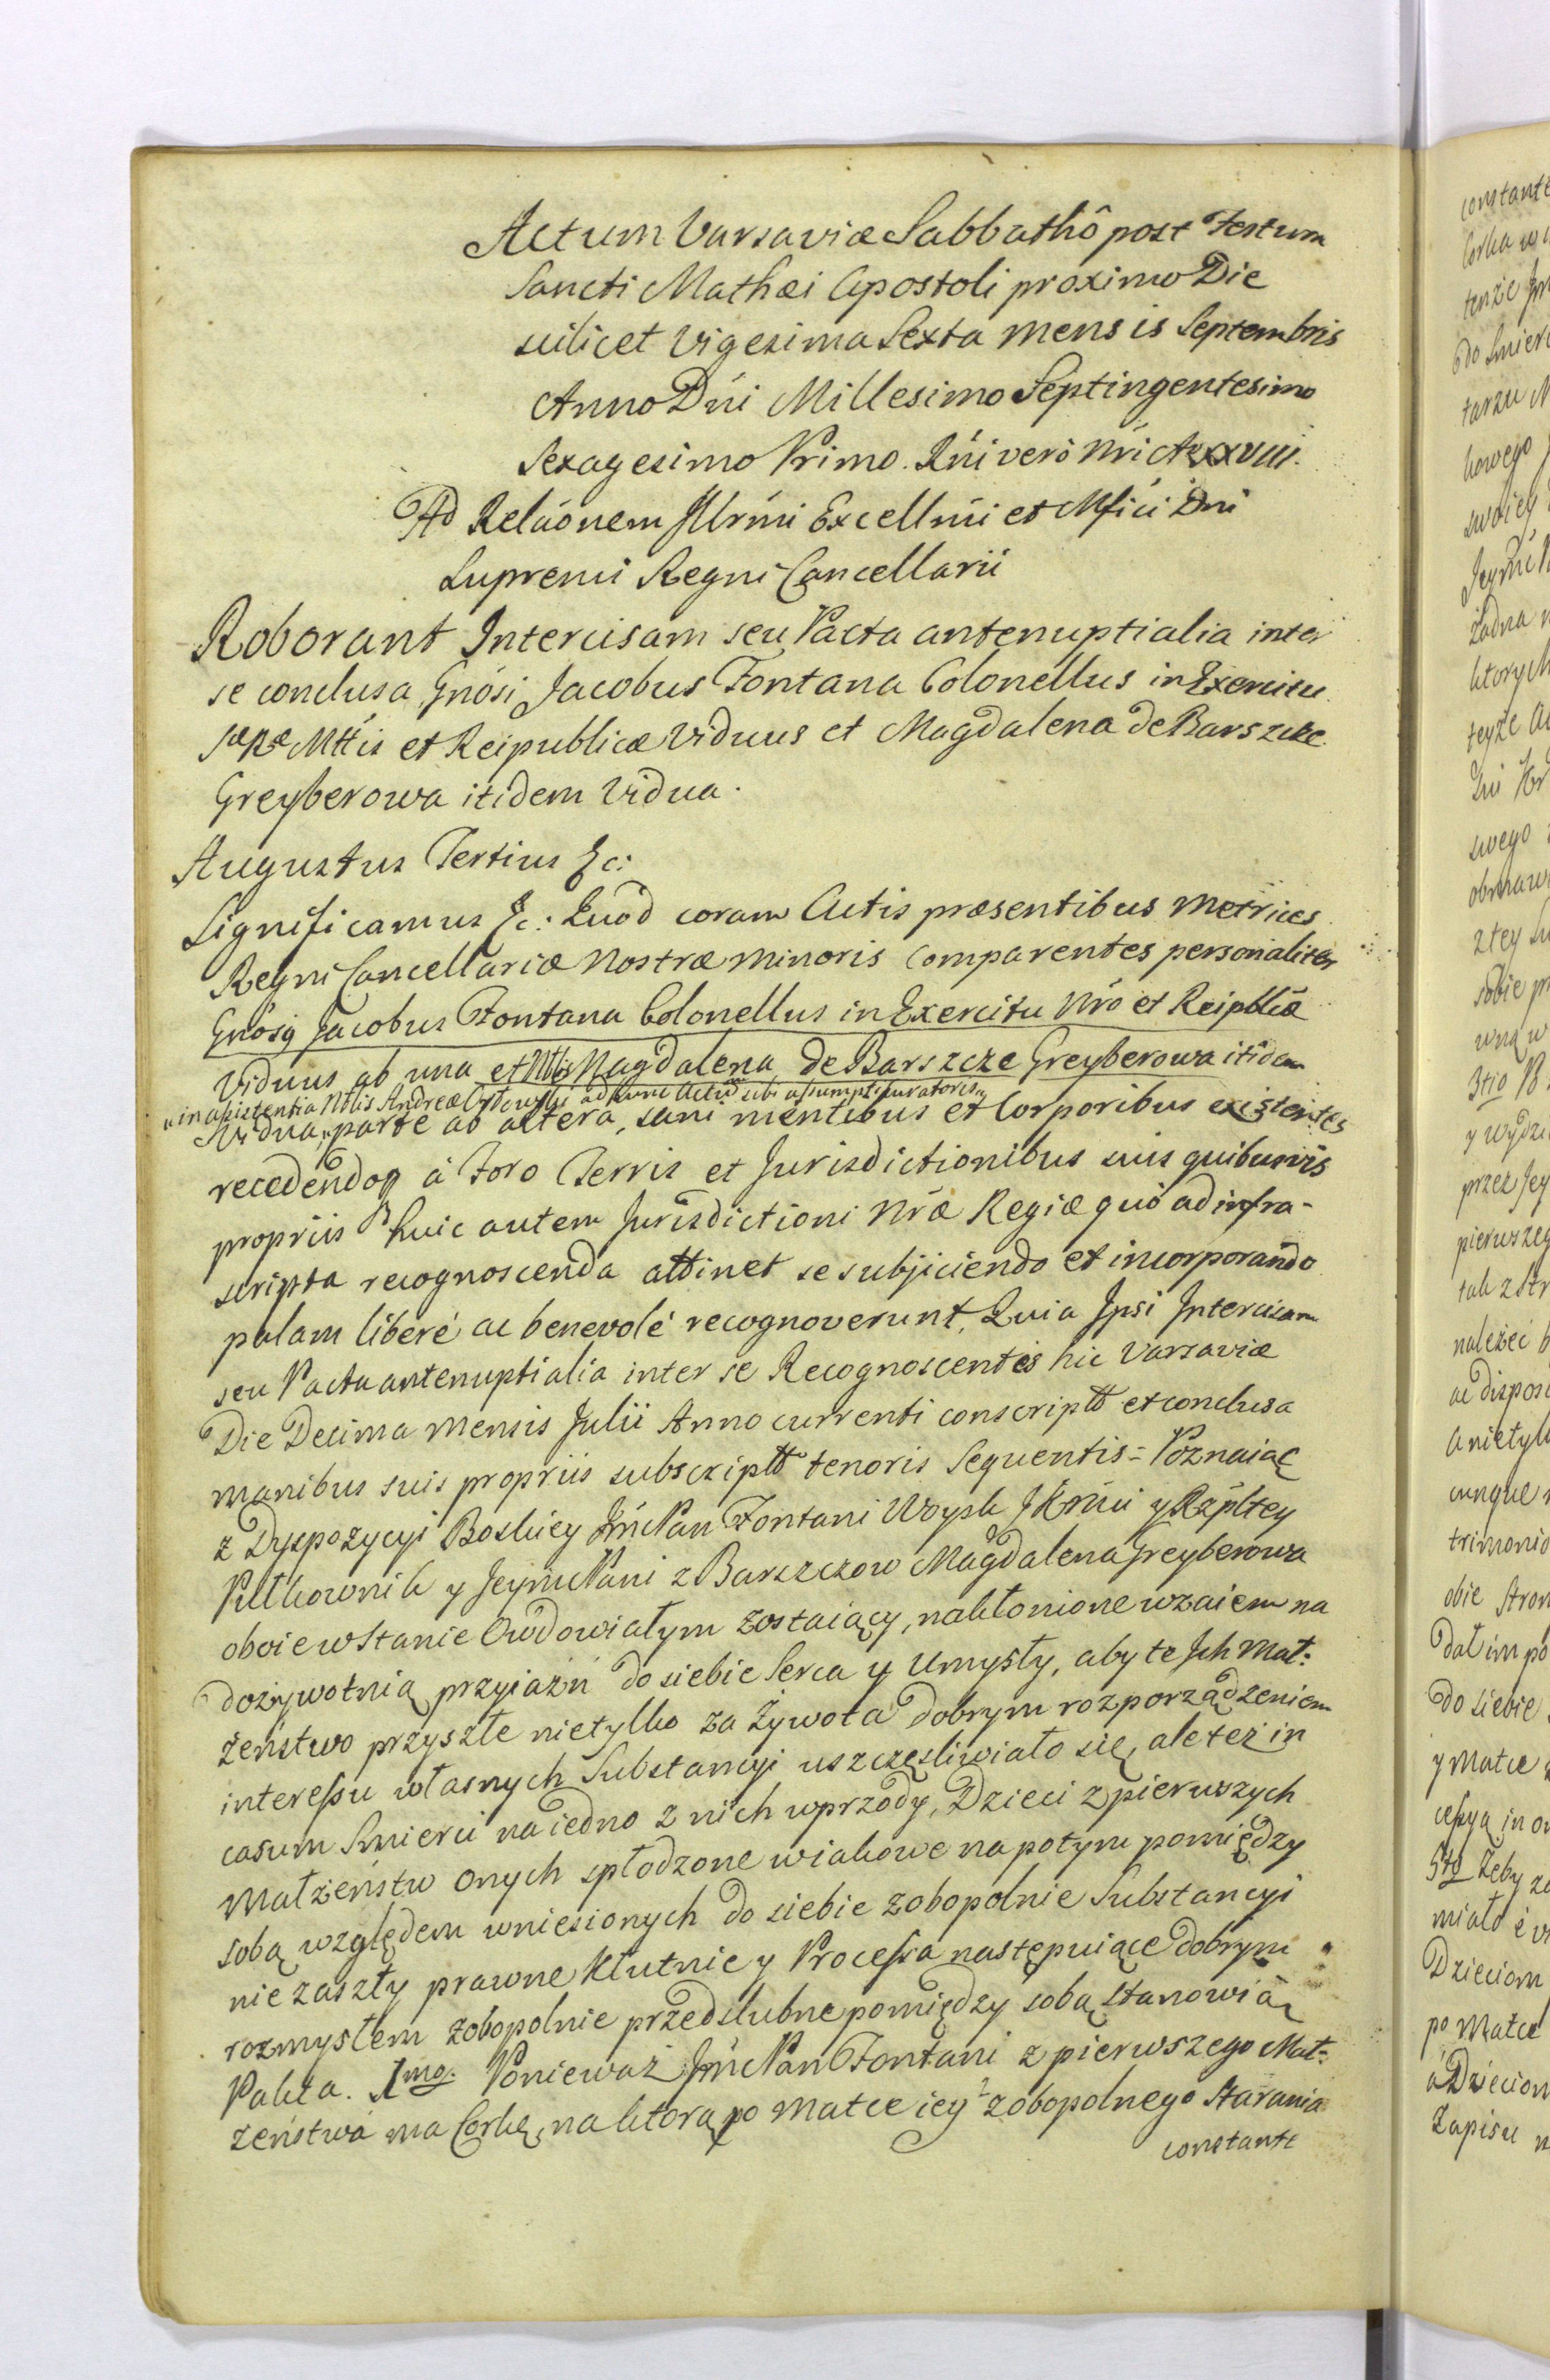 Actum Varsaviæ Sabbathô post Festum
Sancti Mathæi Apostoli proximo Die
scilicet Vigesima Sexta mensis Septembris
Anno Dńi Millesimo Septingentesimo
Sexagesimo Primo. Rńi verò Nri A. XXVIII.
Ad Relaõnem Jllrmi Excellmi et Mfici Dni
Supremi Regni Cancellarii
Roborant Intercisam seu Pacta antenuptialia inter
se conclusa Gnôsi Jacobus Fontana Colonellus in Exercitu
Sæ Ræ Mttis et Reipublicæ Viduus et Magdalena de Barszcze
Greyberowa itidem Vidua.
Augustus Tertius &c:
Significamus &c: Quod coram Actis præsentibus Metrices
Regni Cancellariæ Nostræ Minoris Comparentes personaliter
Gnôsq Jacobus Fontana Colonellus in Exercitu Nrô et Reipblicæ
Viduus ab una et Nblis Magdalena de Barszcze Greyberowa itidem
„in assistentia Nblis Andreæ ad hunc Actum sibi assumpti Curatoris„
Vidua, parte ab altera, sani mentibus et Corporibus existentes
recedendoq à Foro Terris et Jurisdictionibus suis quibusvis
propriis huic autem Jurisdictioni Nræ Regiæ quò ad infra-
scripta recognoscenda attinet se subjiciendo et incorporando
palam liberè ac benevolè recognoverunt, Quia Jpsi Intercisam
seu Pacta antenuptialia inter se Recognoscentes hic Varsaviæ
Die Decima Mensis Julii Anno currenti conscriptt et conclusa
manibus suis propriis subscriptt tenoris Sequentis = Poznaiąc
z Dyspozycyi Boskiey Jmć Pan Fontani Woysk J K Mći y Rzpltey
Pułkownik y Jeymć Pani z Barszczow Magdalena Greyberowa
oboie w Stanie Owdowiałym zostaiący, nakłonione wzaiem na
dożywotnią przyiaźń do siebie Serca y Umysły, aby te Jch Mał:
żeństwo przyszłe nietylko za Żywota dobrym rozporządzeniem
interessu własnych Substancyi uszczęsliwiało się, ale też in
casum Smierci na iedno z nich wprzody, Dzieci z pierwszych
Małżeństw onych spłodzone wiakowe napotym pomiędzy
sobą względem wniesionych do siebie zobopolnie Substancyi
nie zaszły prawne Kłutnie y Processa następuiące dobrym
rozmysłem zobopolnie przedslubne pomiędzy sobą stanowią
Pakta. 1mo. Ponieważ Jmć Pan Fontani z pierwszego Mał-
żeństwa ma Corkę, na ktorą po Matce iey z zobopolnego Starania
constante